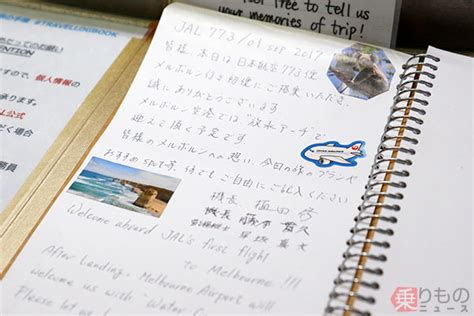 feel free to tell us
your memories of trip!
の手帳 #TRAVELLOGBOOK
だってのお願い
ATTENTION
ですので、個人情報の
L公式
だく場合
務員
JAL 773/01 sep 2017
皆様、本日は日本航空773便
メルボルン行き初便にご搭乗いただき、
誠にありがとうございます。
メルボルン空港では"放水アーチ"で
迎えて頂く予定です
皆様のメルボルンへの想い、今日の旅のプランや
おすすめspot等、何でもご自由にご記入ください
機長
機長
Welcome aboard JAL's first flight
to Melbourne!!!
After Landing, Melbourne Airport will
welcome us with "Water
Please let
JAPAN AIRLINES
乗りもの
ニュース